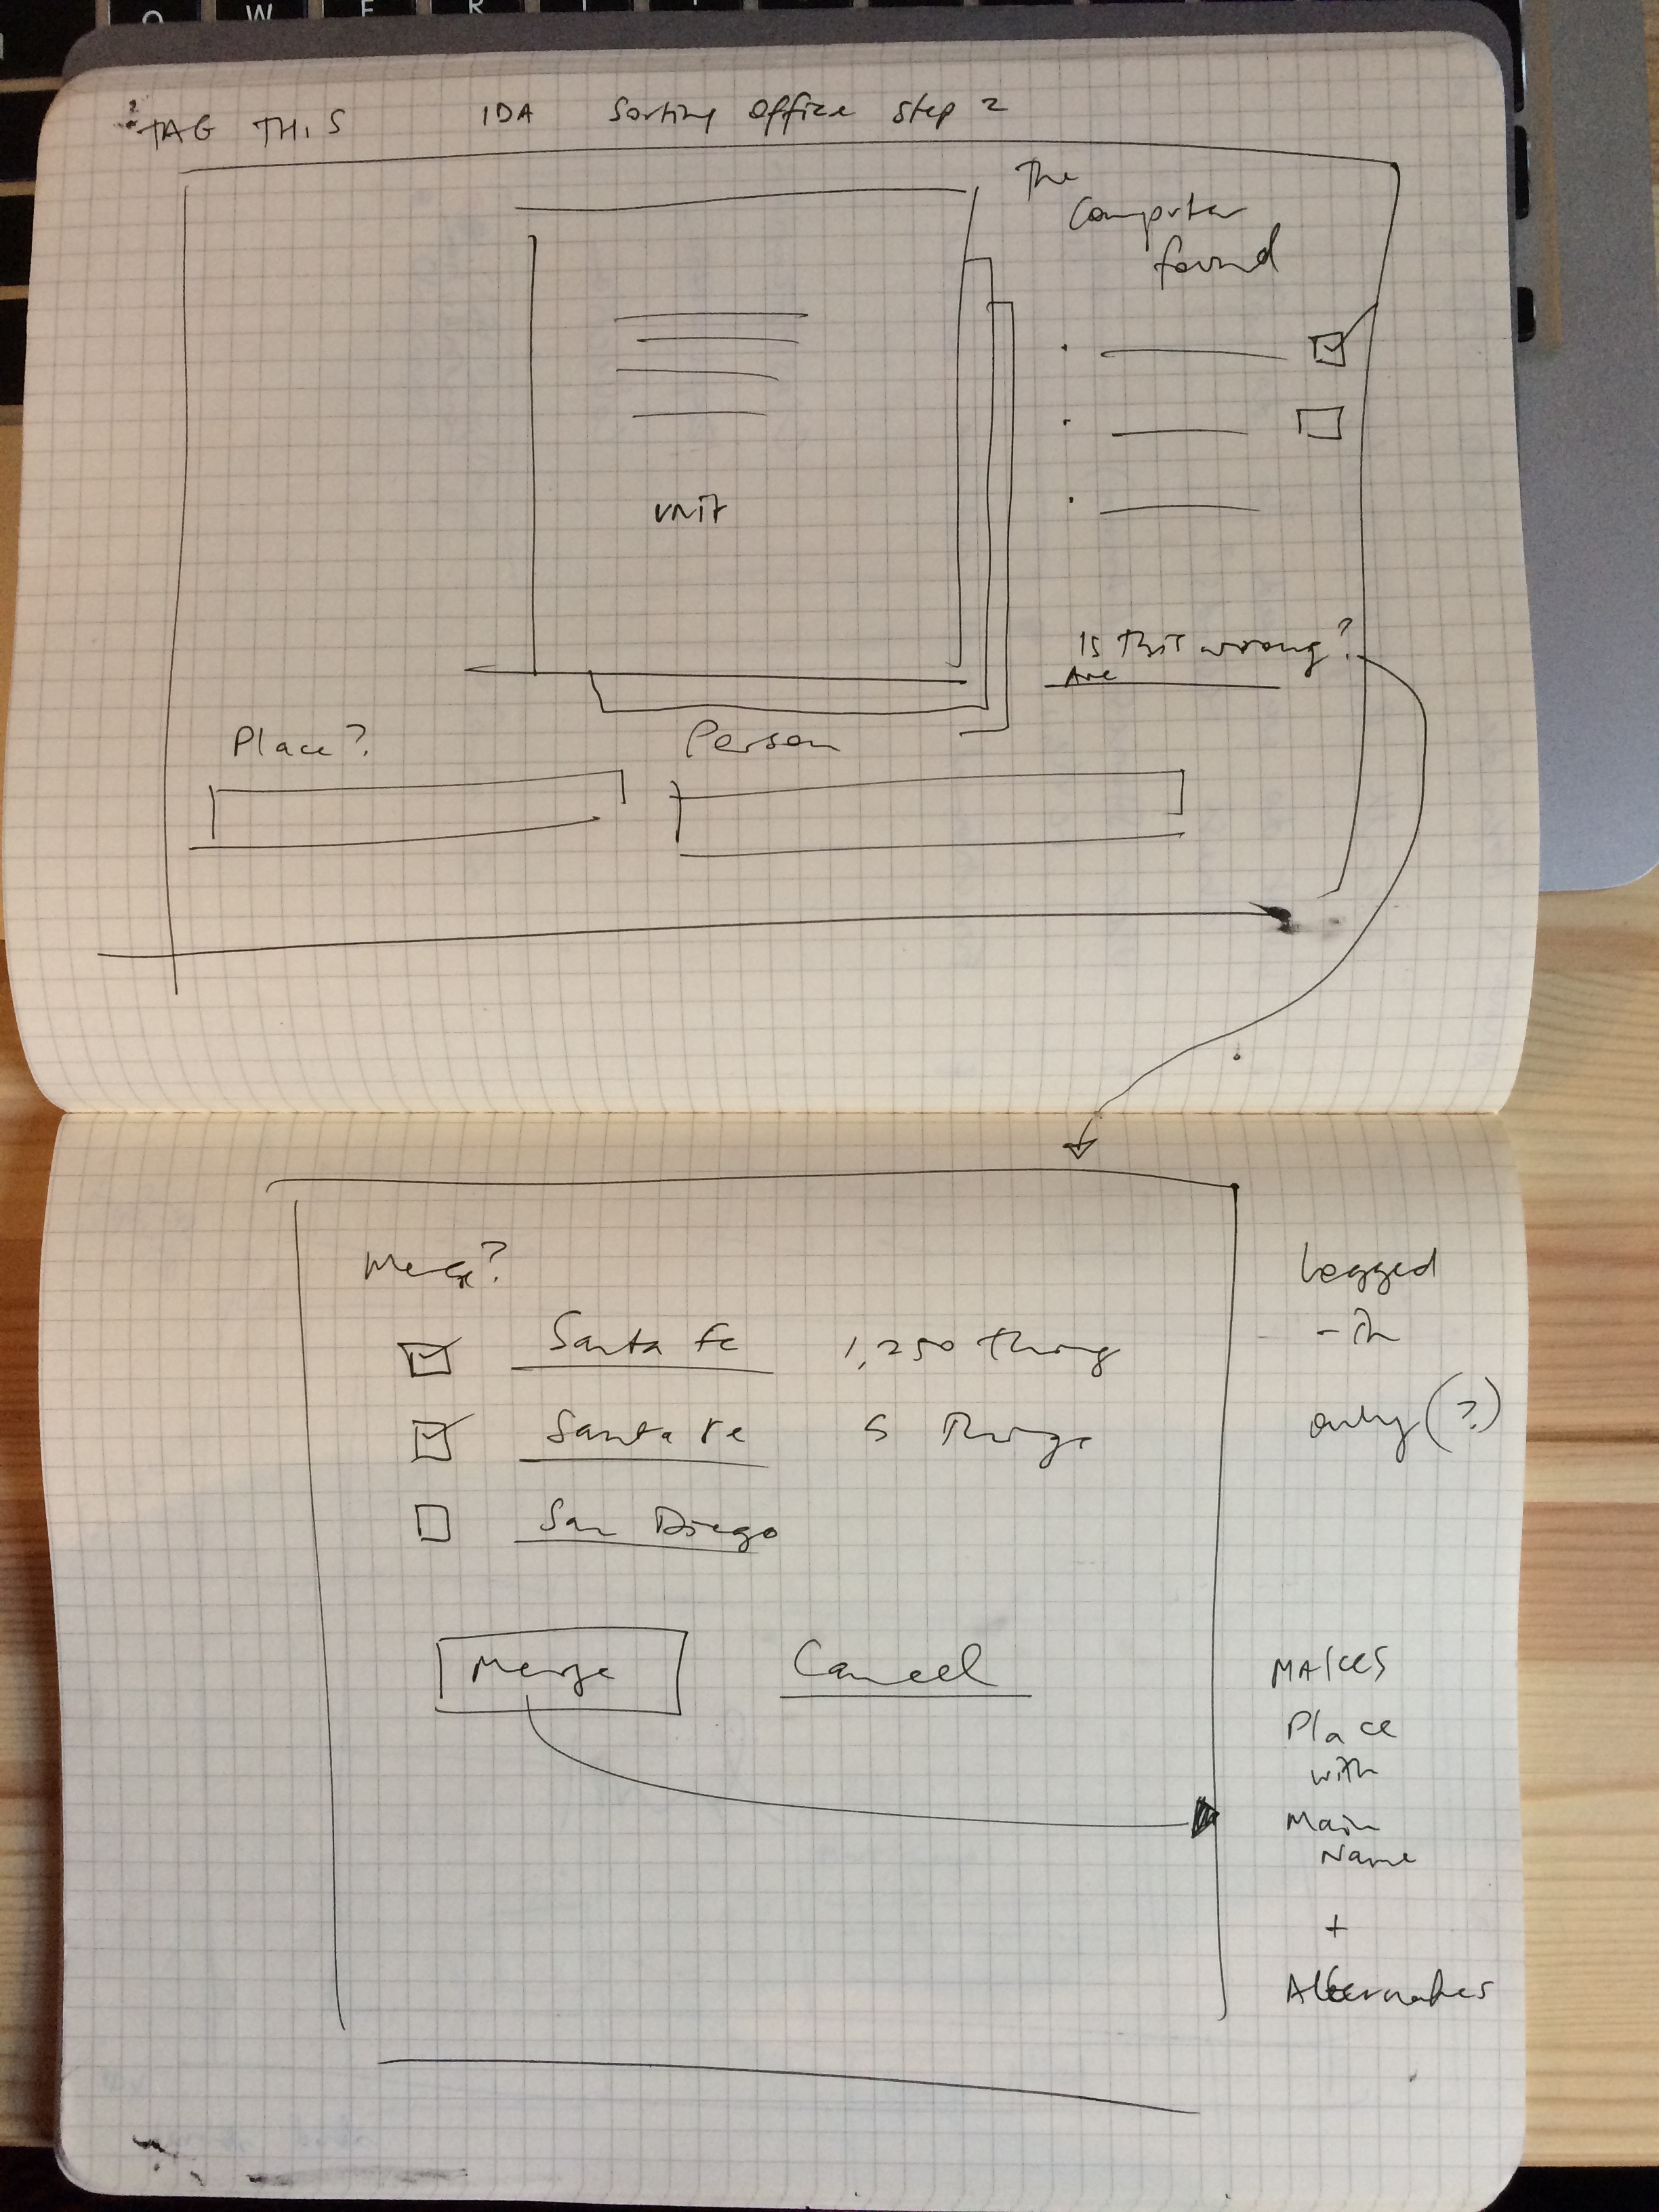 ? TAG THIS IDA Sorting Office Step 2
The
Computer
found
unit
Is this wrong?
Are
Place?
Person
Merge?
Santa Fe 1,250 things
Santa Fe 5 Things
San Diego
Merge Cancel
Logged
-in
only (?)
MAKES
Place
with
Main
Name
+
Alternates